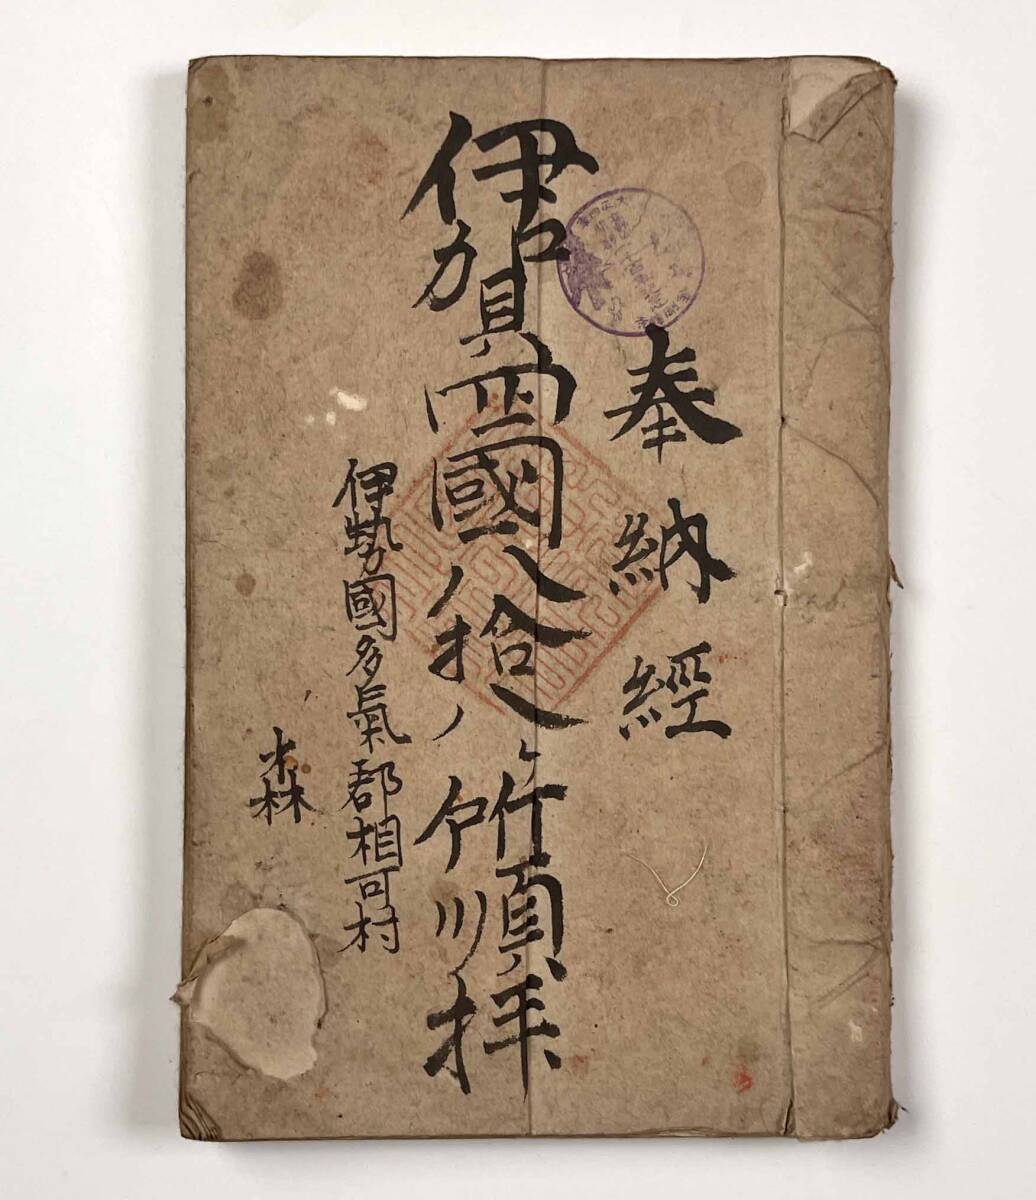 奉納經
伊賀四國八拾八ヶ所順拝
伊勢國多氣郡相可村
森